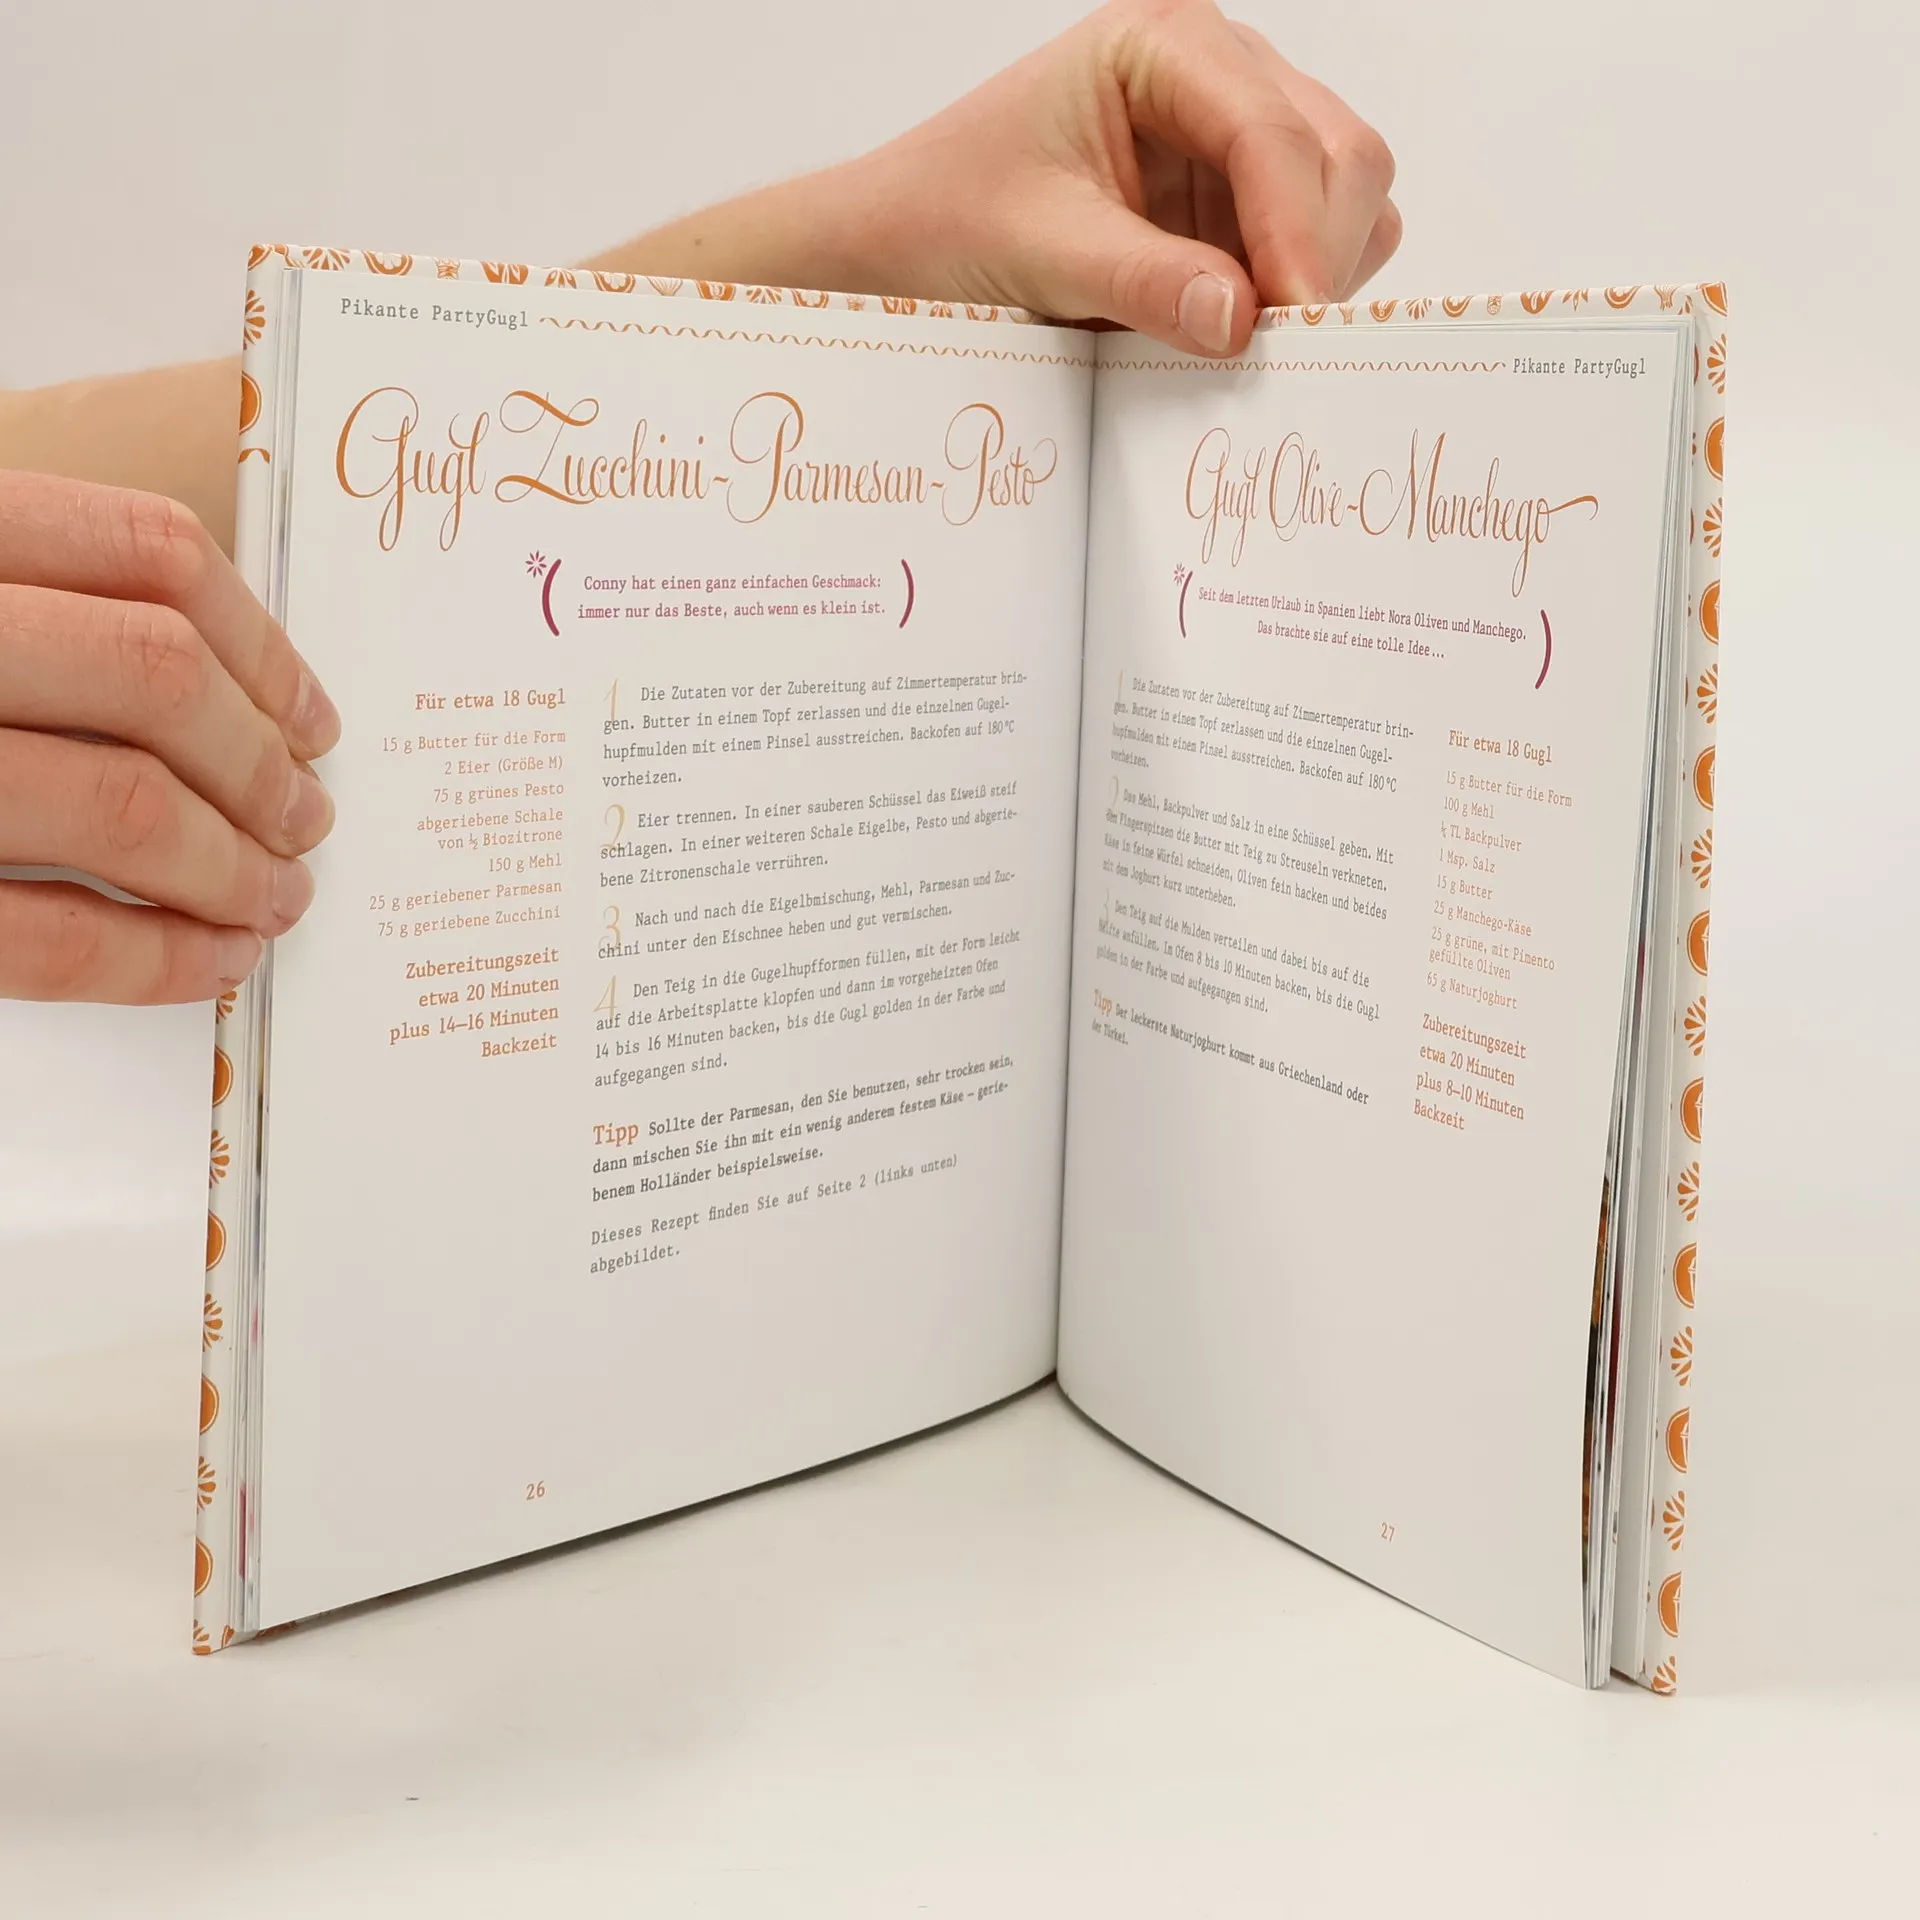 Pikante PartyGugl
Gugl Zucchini-Parmesan-Pesto
Conny hat einen ganz einfachen Geschmack:
immer nur das Beste, auch wenn es klein ist.
Für etwa 18 Gugl
15 g Butter für die Form
2 Eier (Größe M)
75 g grünes Pesto
abgeriebene Schale
von ½ Biozitrone
150 g Mehl
25 g geriebener Parmesan
75 g geriebene Zucchini
Zubereitungszeit
etwa 20 Minuten
plus 14–16 Minuten
Backzeit
1 Die Zutaten vor der Zubereitung auf Zimmertemperatur brin-
gen. Butter in einem Topf zerlassen und die einzelnen Gugel-
hupfmulden mit einem Pinsel ausstreichen. Backofen auf 180 °C
vorheizen.
2 Eier trennen. In einer sauberen Schüssel das Eiweiß steif
schlagen. In einer weiteren Schale Eigelbe, Pesto und abgerie-
bene Zitronenschale verrühren.
3 Nach und nach die Eigelbmischung, Mehl, Parmesan und Zuc-
chini unter den Eischnee heben und gut vermischen.
4 Den Teig in die Gugelhupfformen füllen, mit der Form leicht
auf die Arbeitsplatte klopfen und dann im vorgeheizten Ofen
14 bis 16 Minuten backen, bis die Gugl golden in der Farbe und
aufgegangen sind.
Tipp Sollte der Parmesan, den Sie benutzen, sehr trocken sein,
dann mischen Sie ihn mit ein wenig anderem festem Käse – gerie-
benem Holländer beispielsweise.
Dieses Rezept finden Sie auf Seite 2 (links unten)
abgebildet.
26
Pikante PartyGugl
Gugl Olive-Manchego
Seit dem letzten Urlaub in Spanien liebt Nora Oliven und Manchego.
Das brachte sie auf eine tolle Idee...
1 Die Zutaten vor der Zubereitung auf Zimmertemperatur brin-
gen. Butter in einem Topf zerlassen und die einzelnen Gugel-
hupfmulden mit einem Pinsel ausstreichen. Backofen auf 180 °C
vorheizen.
2 Das Mehl, Backpulver und Salz in eine Schüssel geben. Mit
den Fingerspitzen die Butter mit Teig zu Streuseln verkneten.
Käse in feine Würfel schneiden, Oliven fein hacken und beides
mit dem Joghurt kurz unterheben.
3 Den Teig auf die Mulden verteilen und dabei bis auf die
Hälfte anfüllen. Im Ofen 8 bis 10 Minuten backen, bis die Gugl
golden in der Farbe und aufgegangen sind.
Tipp Der leckerste Naturjoghurt kommt aus Griechenland oder
der Türkei.
Für etwa 18 Gugl
15 g Butter für die Form
100 g Mehl
½ TL Backpulver
1 Msp. Salz
15 g Butter
25 g Manchego-Käse
25 g grüne, mit Pimento
gefüllte Oliven
65 g Naturjoghurt
Zubereitungszeit
etwa 20 Minuten
plus 8–10 Minuten
Backzeit
27